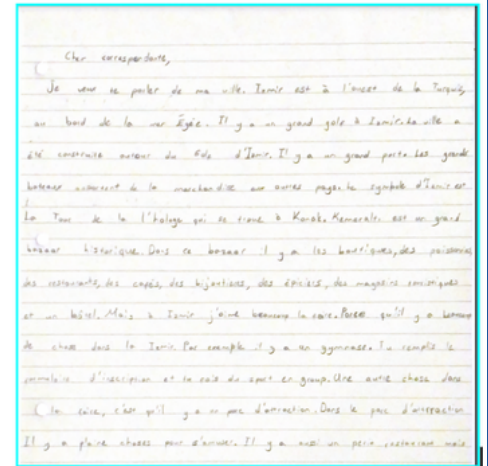 Cher correspondante,
Je veux te parler de ma ville. Izmir est à l'ouest de la Turquie,
au bord de la mer Égée. Il y a un grand golf à Izmir. La ville a
été construite autour du Golf d'Izmir. Il y a un grand porte. Les grands
bateaux de la marchandise aux autres pays. Le symbole d'Izmir est
La Tour de la l'hologe qui se trouve à Konak. Kemeraltı est un grand
bazaar historique. Dans ce bazaar il y a les boutiques, des poissonries,
des restaurants, des cafés, des bijoutiers, des épiciers, des magasins
et un hôtel. Mais à Izmir j'aime beaucoup la foire. Parce qu'il y a
de chose dans la Izmir. Par exemple il y a un gymnase. Tu remplis le
d'inscription et tu fais du sport en group. Une autre chose dans
la foire, c'est qu'il y a un parc d'attraction. Dans le parc d'attraction
Il y a choses pour s'amuser. Il y a aussi un restaurant mais